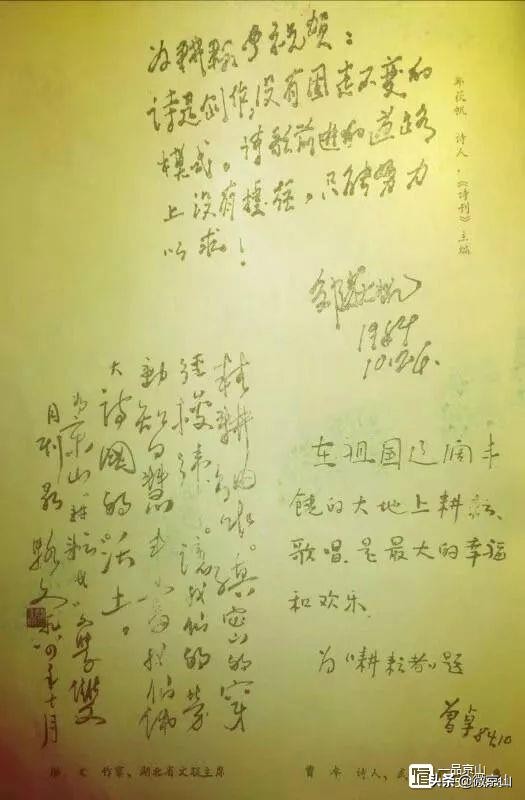 为耕耘祝贺:
诗是创作,没有固定不变的
模式。诗歌前进的道路
上没有捷径,只能努力
以求!
邹荻帆
1984
10.26.
邹荻帆 诗人,《诗刊》主编
在祖国辽阔丰
饶的大地上耕耘、
歌唱,是最大的幸福
和欢乐.
为《耕耘者》题
曾卓 84.10
精耕细作。密的穿
经纬。让我们的劳
动和智慧来丰富我们伟
大诗国的沃土。
为京山《耕耘》文学双
月刊 骆文 八四年十月
骆文 作家、湖北省文联主席
曾卓 诗人、武
一品京山
头条 @微京山